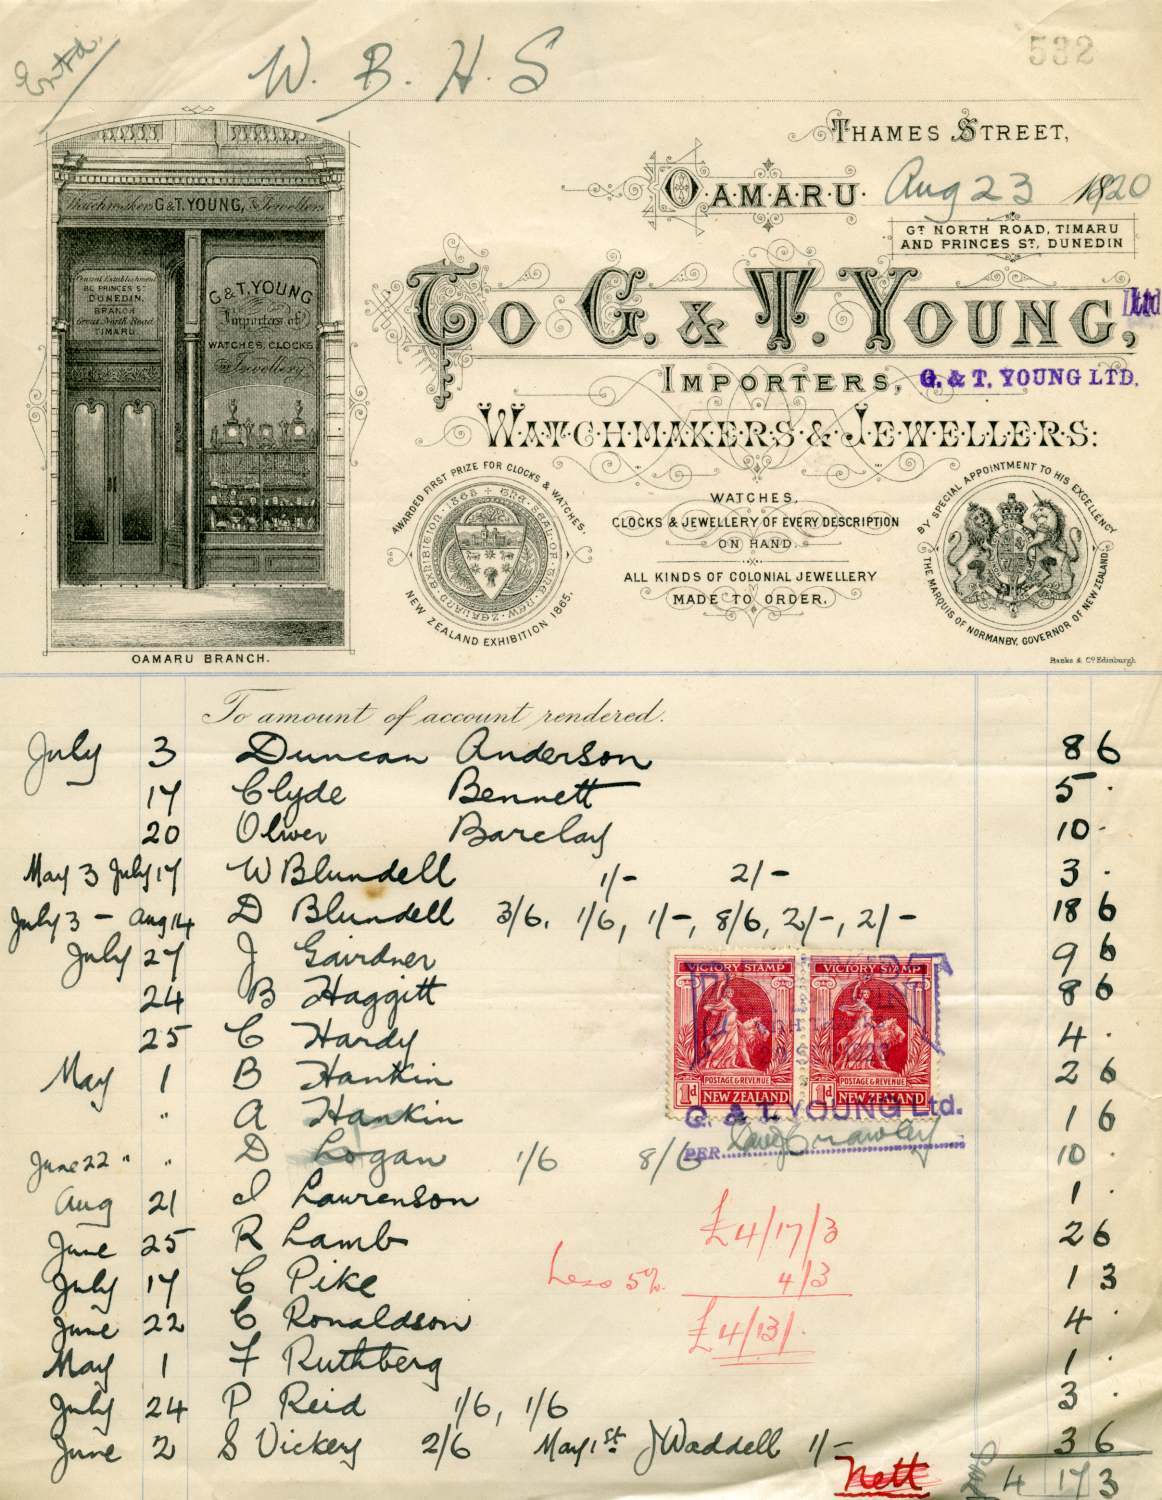 Entd.
W. B. H. S
532
THAMES STREET,
OAMARU. Aug 23 1920
GT NORTH ROAD, TIMARU
AND PRINCES ST, DUNEDIN
TO G. & T. YOUNG, Ltd
IMPORTERS, G. & T. YOUNG LTD.
WATCHMAKERS & JEWELLERS:
Watchmakers G & T. YOUNG, & Jewellers
80 PRINCES ST
DUNEDIN.
BRANCH
Great North Road
TIMARU.
G & T. YOUNG
Importers of
WATCHES, CLOCKS
Jewellery
OAMARU BRANCH.
AWARDED FIRST PRIZE FOR CLOCKS & WATCHES.
NEW ZEALAND EXHIBITION 1865.
WATCHES,
CLOCKS & JEWELLERY OF EVERY DESCRIPTION
ON HAND.
ALL KINDS OF COLONIAL JEWELLERY
MADE TO ORDER.
BY SPECIAL APPOINTMENT TO HIS EXCELLENCY
THE MARQUIS OF NORMANBY, GOVERNOR OF NEW ZEALAND.
Banks & Co Edinburgh
To amount of account rendered.
July 3 Duncan Anderson 8 6
17 Clyde Bennett 5 .
20 Oliver Barclay 10 .
May 3 July 17 W Blundell 1/- 2/- 3 .
July 3 - Aug 14 D Blundell 3/6, 1/6, 1/-, 8/6, 2/-, 2/- 18 6
July 27 J Gairdner 9 6
24 B Haggitt 8 6
25 C Hardy 4 .
May 1 B Hankin 2 6
" A Hankin 1 6
June 22 " " D Logan 1/6 8/6 10 .
Aug 21 I Laurenson 1 .
June 25 R Lamb 2 6
July 17 C Pike 1 3
June 22 C Ronaldson 4 .
May 1 F Ruthberg 1 .
July 24 P Reid 1/6, 1/6 3 .
June 2 S Vickery 2/6 May 1st J Waddell 1/- 3 6
Nett 4 17 3
VICTORY STAMP VICTORY STAMP
POSTAGE & REVENUE POSTAGE & REVENUE
1d NEW ZEALAND 1d NEW ZEALAND
G. & T. YOUNG Ltd.
PER
£4/17/3
Less 5% 4/3
£4/13/.